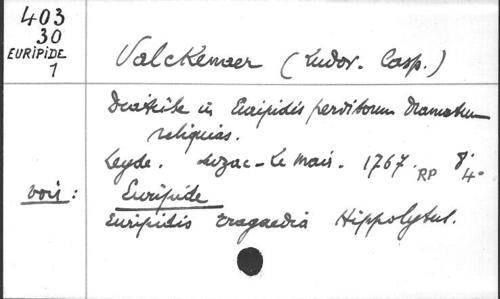 403
30
EURIPIDE
1
Valckenaer (Ludov. Casp.)
Diatribe in Euripidis perditorum dramatum
reliquias.
Leyde. Luzac-Le Mair. 1767. RP 4°
voir : Euripide
Euripidis tragaedia Hippolytus.